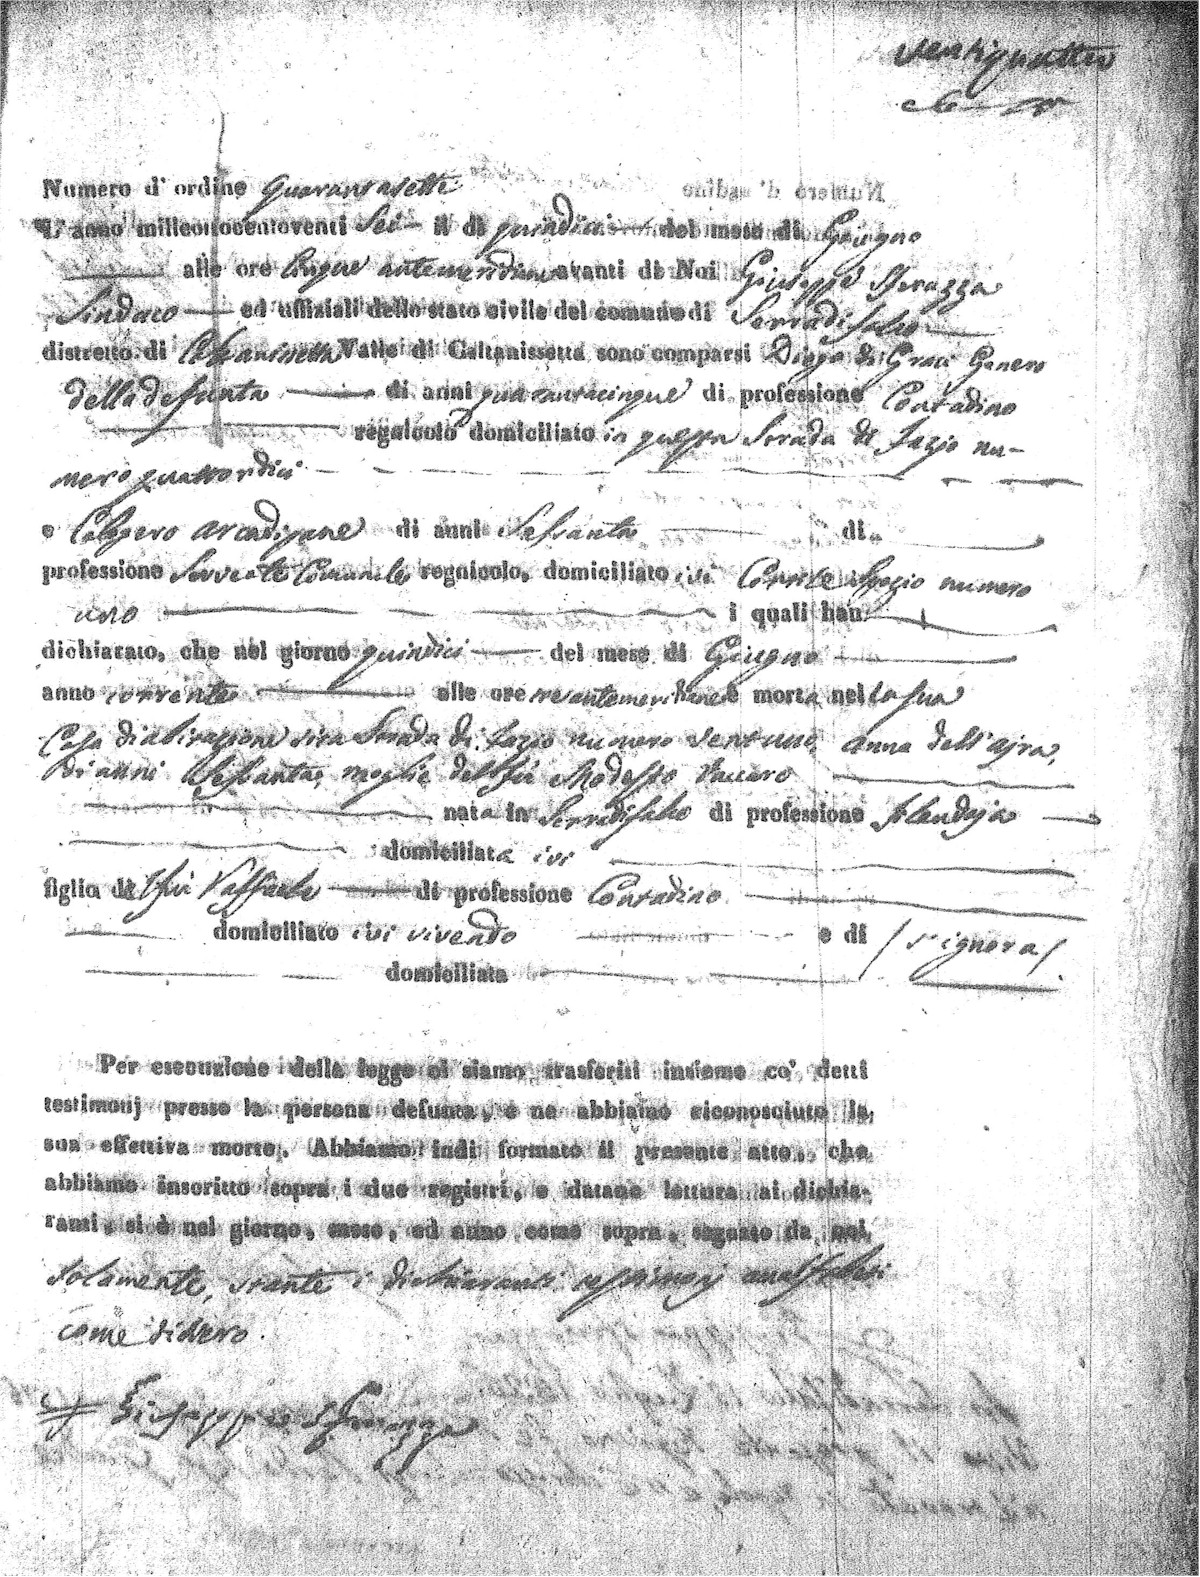 ventiquattro
Numero d' ordine quarantasette
L' anno milleottocentoventi Sei il di quindici del mese di Giugno
alle ore Cinque antemeridiane avanti di Noi Giuseppe Sferazza
Sindaco ed uffiziali dello stato civile del comune di Serradifalco
distretto di Caltanissetta Valle di Caltanissetta sono comparsi Diego di Graci Genero
della defunta di anni quarantacinque di professione Contadino
regnicolo domiciliato in questa Strada di Fazio nu-
mero quattordici
e Calogero Arcadipane di anni Sessanta di
professione Servente Comunale regnicolo, domiciliato ivi numero
uno i quali han
dichiarato, che nel giorno quindici del mese di Giugno
anno corrente alle ore tre antemeridiane è morta nel la sua
Casa di abitazione sita Strada di Fazio numero ventuno, anna dell'ajra,
di anni Sessanta, moglie del fù Modesto Vaccaro
nata in Serradifalco di professione filandaja
domiciliata ivi
figlia di fù Raffaele di professione Contadino
domiciliato ivi vivendo e di / s'ignora /
domiciliata
Per esecuzione della legge ci siamo trasferiti insieme co' detti
testimonj presso la persona defunta, e ne abbiamo riconosciuto la
sua effettiva morte. Abbiamo indi formato il presente atto, che
abbiamo inscritto sopra i due registri, e datane lettura ai dichia-
ranti, si è nel giorno, mese, ed anno come sopra, segnato da noi
solamente, stante i dichiaranti testimonj analfabeti
come dissero.
Giuseppe Sferazza